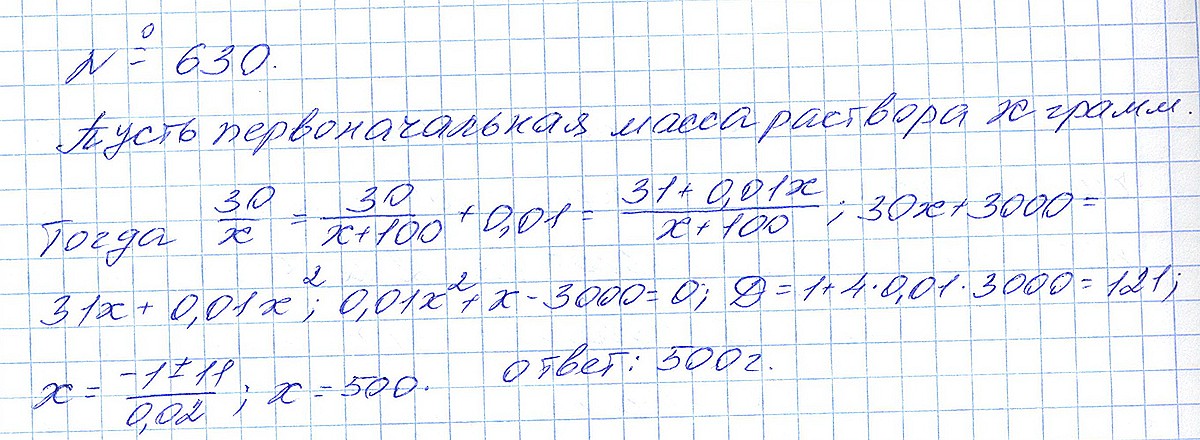 № 630.
Пусть первоначальная масса раствора x грамм.
Тогда 30/x = 30/(x+100) + 0,01 = (31 + 0,01x)/(x+100); 30x + 3000 =
31x + 0,01x²; 0,01x² + x - 3000 = 0; D = 1 + 4·0,01·3000 = 121;
x = (-1 ± 11)/0,02; x = 500. ответ: 500 г.